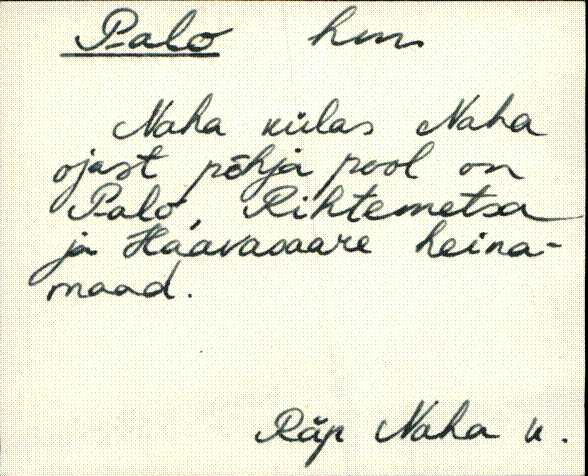 Palo hm
Naha külas Naha
ojast põhja pool on
Palo, Rihtemetsa
ja Haavasaare heina-
maad.
Räp Naha k.